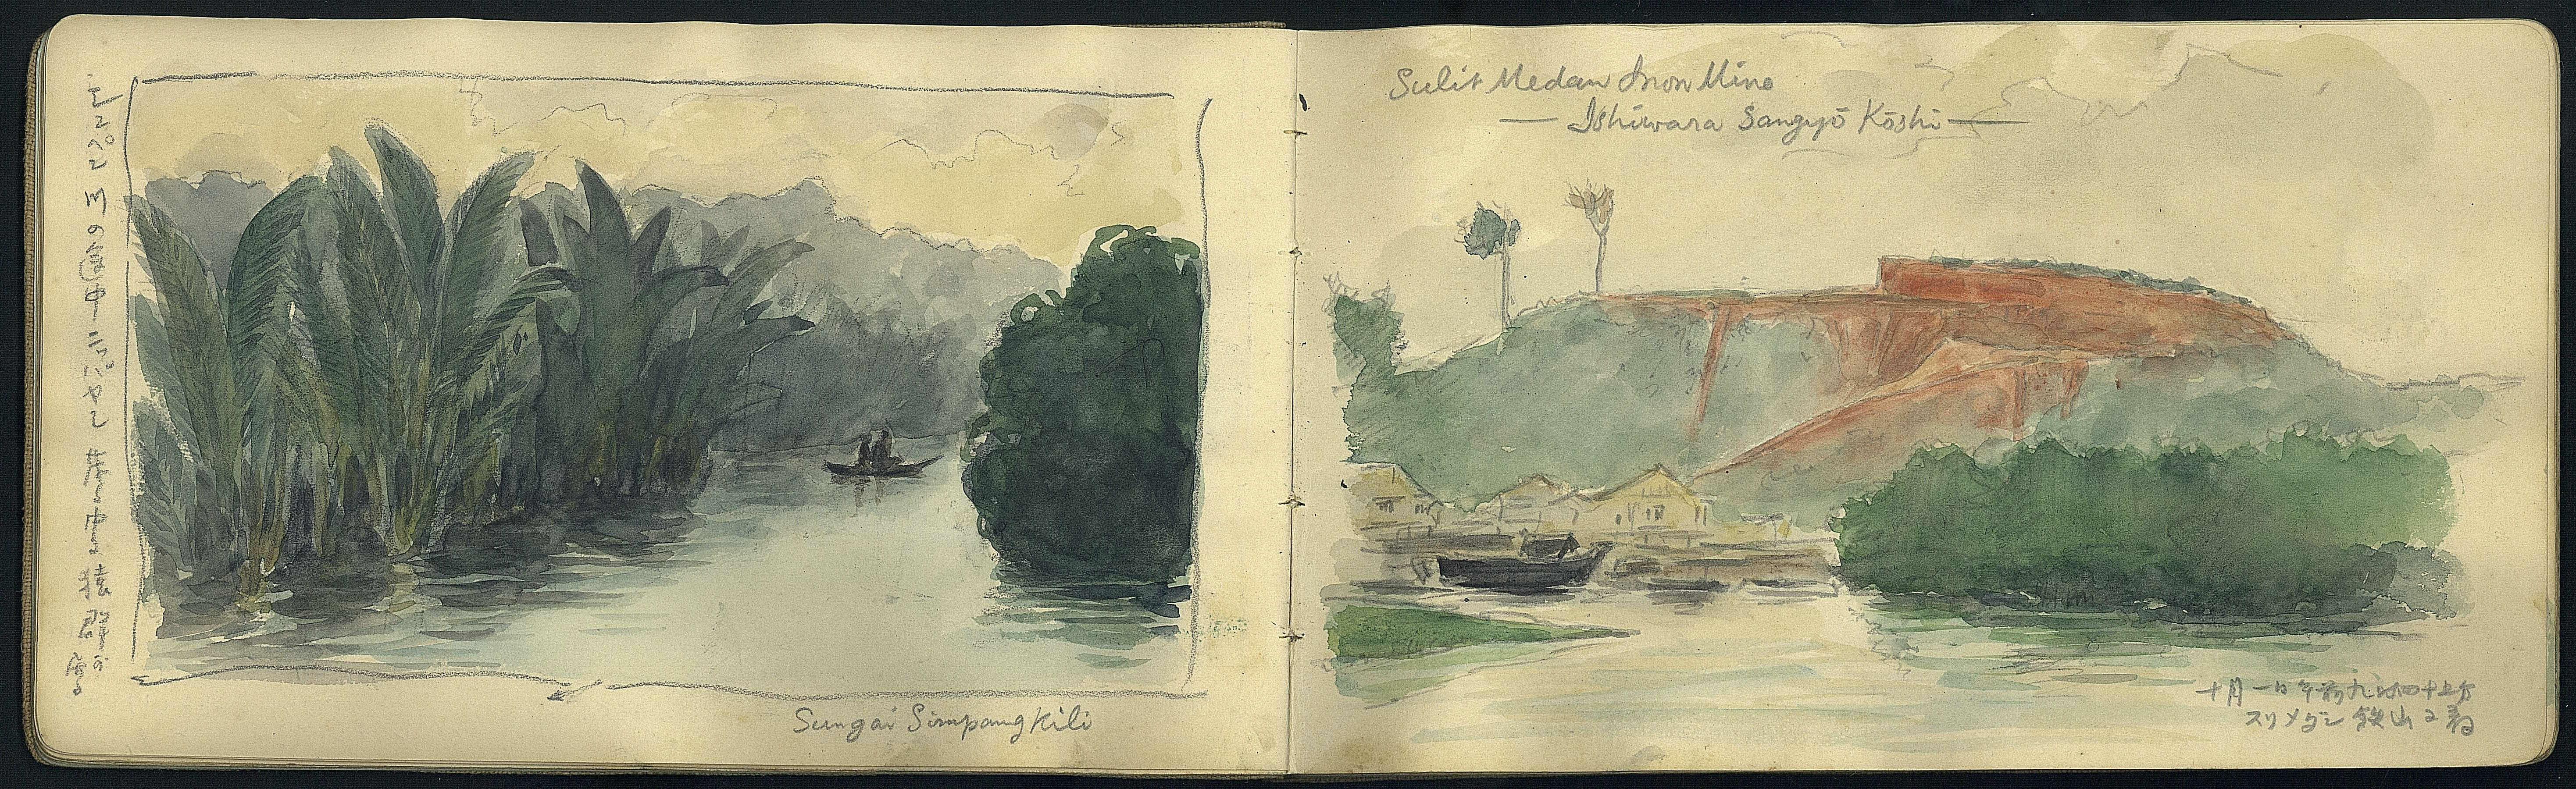 川の途中ニッパヤシ
Sungai Simpang Kili
Sulit Medan Iron Mine
— Ishiwara Sangyō Kōshi —
十月一日午前九時四十五分
スリメダン鉄山